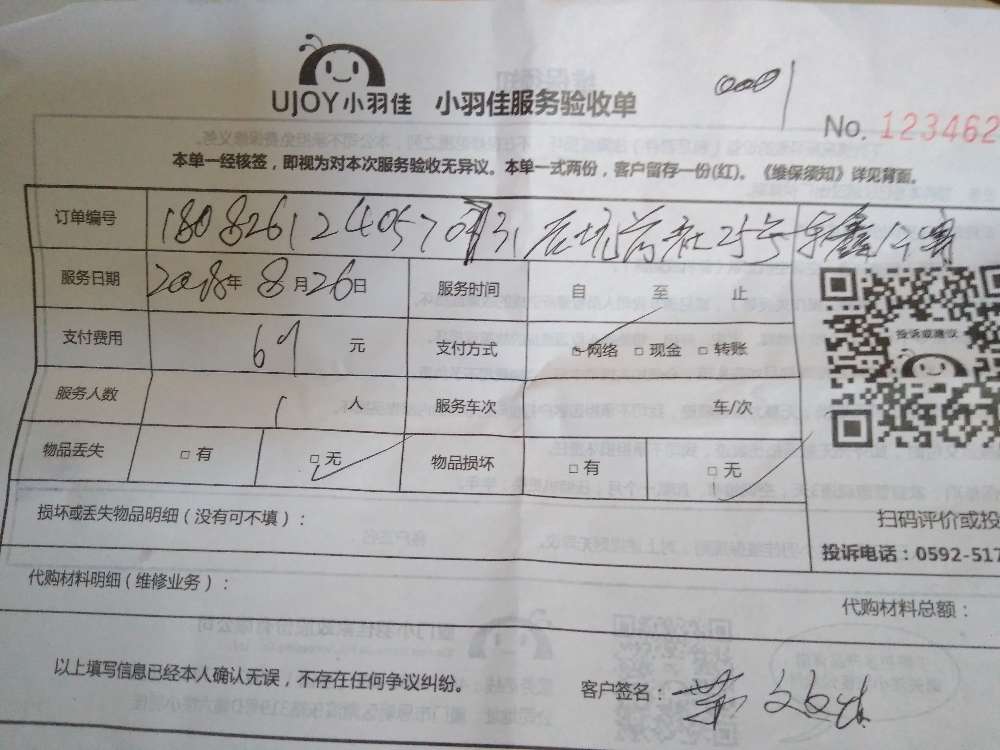 UJOY小羽佳 小羽佳服务验收单
No. 123462
本单一经核签，即视为对本次服务验收无异议。本单一式两份，客户留存一份(红)。《维保须知》详见背面。
订单编号
服务日期 2018年 8月26日 服务时间 自 至 止
投诉或建议
支付费用 69 元 支付方式 □网络 □现金 □转账
服务人数 1 人 服务车次 车/次
物品丢失 □有 □无 物品损坏 □有 □无
损坏或丢失物品明细（没有可不填）：
扫码评价或投
投诉电话：0592-517
代购材料明细（维修业务）：
代购材料总额：
以上填写信息已经本人确认无误，不存在任何争议纠纷。
客户签名：